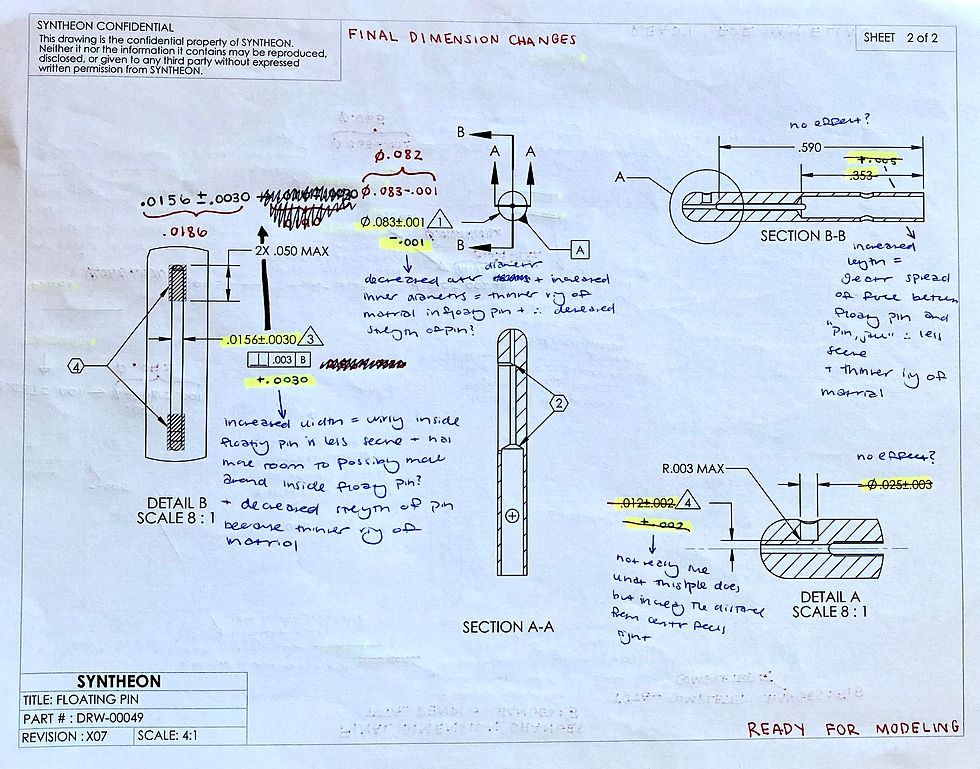 SYNTHEON CONFIDENTIAL
This drawing is the confidential property of SYNTHEON.
Neither it nor the information it contains may be reproduced,
disclosed, or given to any third party without expressed
written permission from SYNTHEON.
FINAL DIMENSION CHANGES
SHEET 2 of 2
no effect?
.590
+.005
.353
A
SECTION B-B
increased
length =
spread
of force
floating pin and
"pin, jaw" ∴ less
+ thinner of
B
A A
B
A
Ø.082
Ø.083-.001
Ø.083±.001 1
-.001
decreased outer diameter + increased
inner diameters = thinner of
material in floating pin + ∴ decreased
strength of pin?
.0156 ±.0030
.0186
2X .050 MAX
.0156±.0030 3
.003 B
+.0030
4
increased width = wiring inside
floating pin is less secure + has
more room to possibly move
around inside floating pin?
+ decreased strength of pin
because thinner of
material
DETAIL B
SCALE 8 : 1
2
SECTION A-A
no effect?
R.003 MAX
Ø.025±.003
.012±.002 4
+.002
not really
what this does
but the distance
from center feels
right
DETAIL A
SCALE 8 : 1
SYNTHEON
TITLE: FLOATING PIN
PART # : DRW-00049
REVISION : X07 SCALE: 4:1
READY FOR MODELING